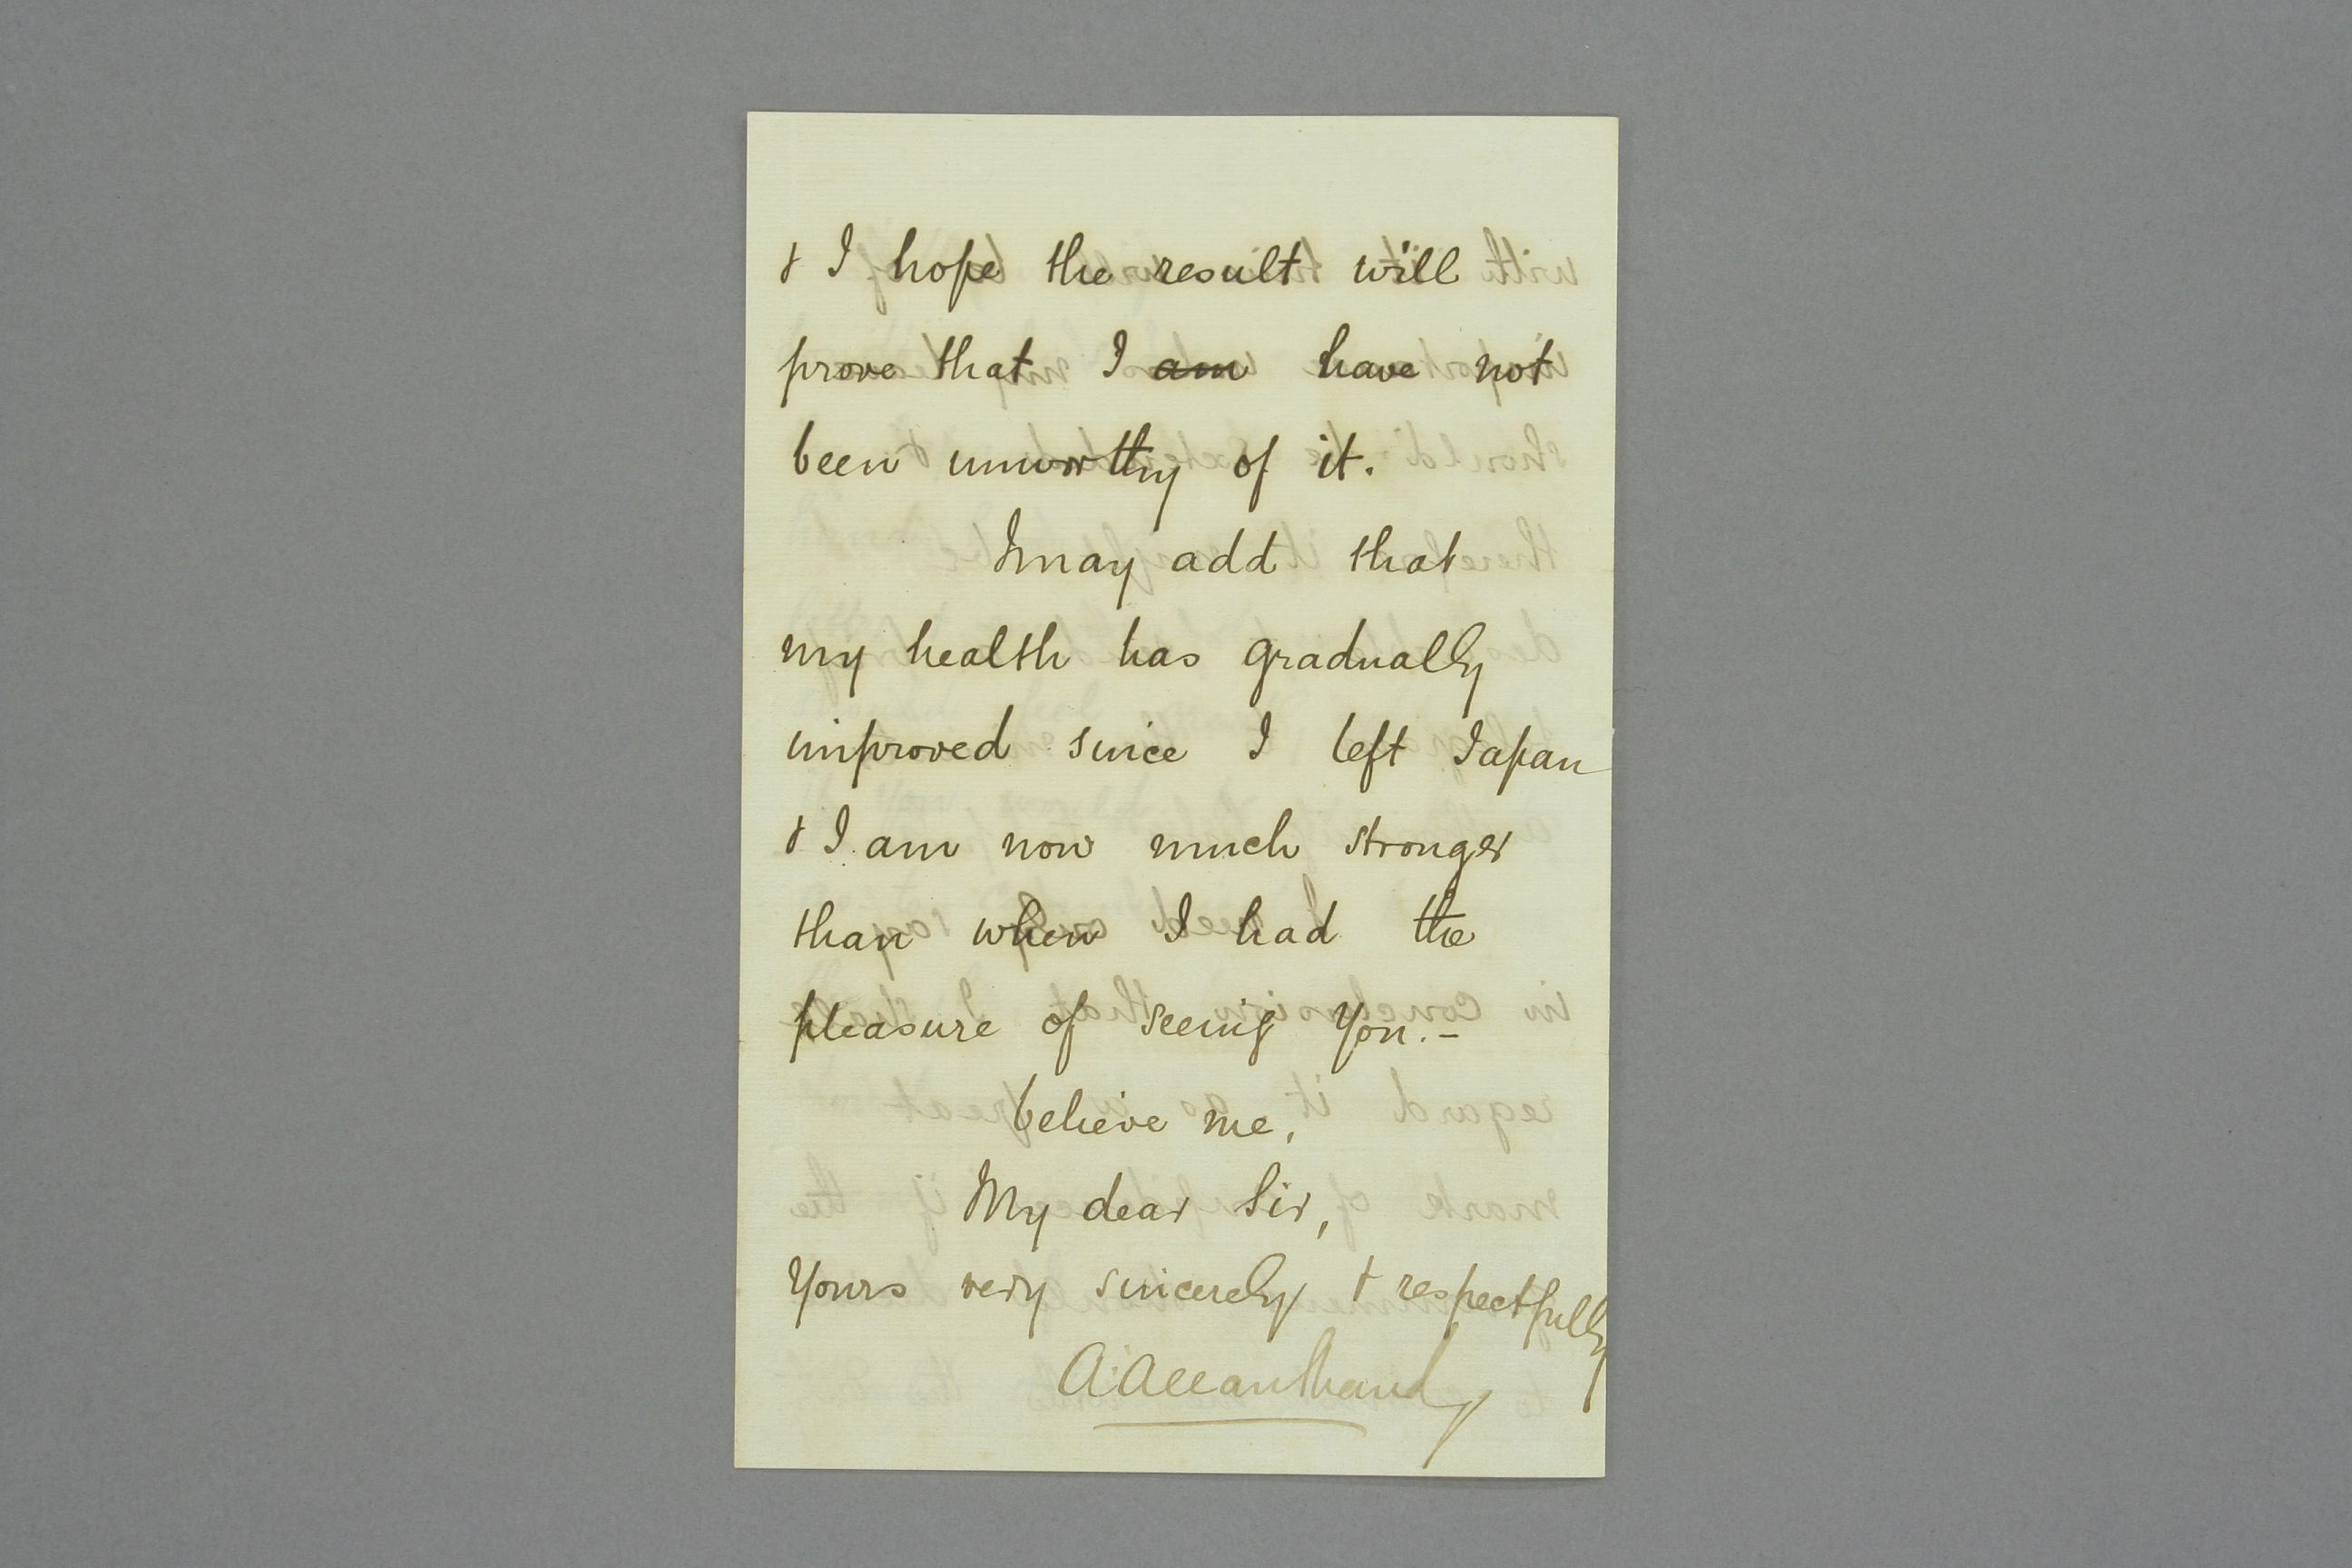 & I hope the result will
prove that I am have not
been unworthy of it.
I may add that
my health has gradually
improved since I left Japan
& I am now much stronger
than when I had the
pleasure of seeing you. –
believe me,
My dear Sir,
Yours very sincerely & respectfully
A Allan Shand